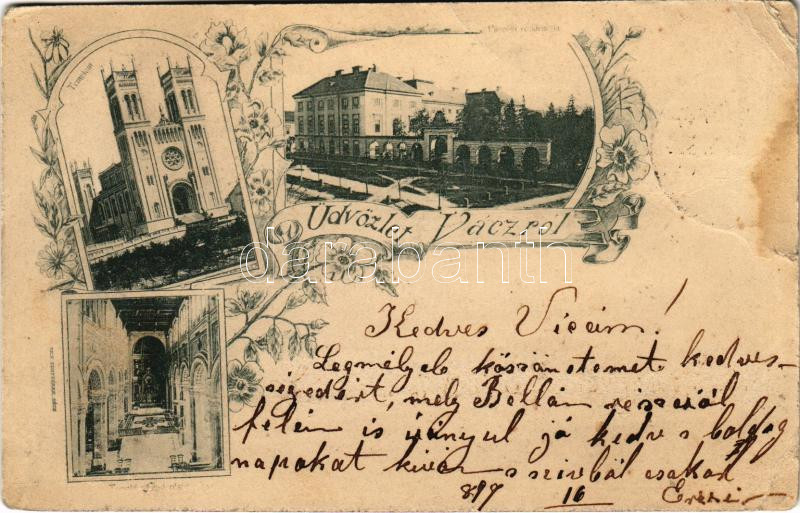 Templom
Püspöki residencia
Üdvözlet Váczról
darabanth
Kedves Vicám!
Legmélyeb köszönetemet kedves-
ségedért, mely Bellám részéről
felém is irányul jó kedv s boldog
napokat kíván s szivből csakad
897 16